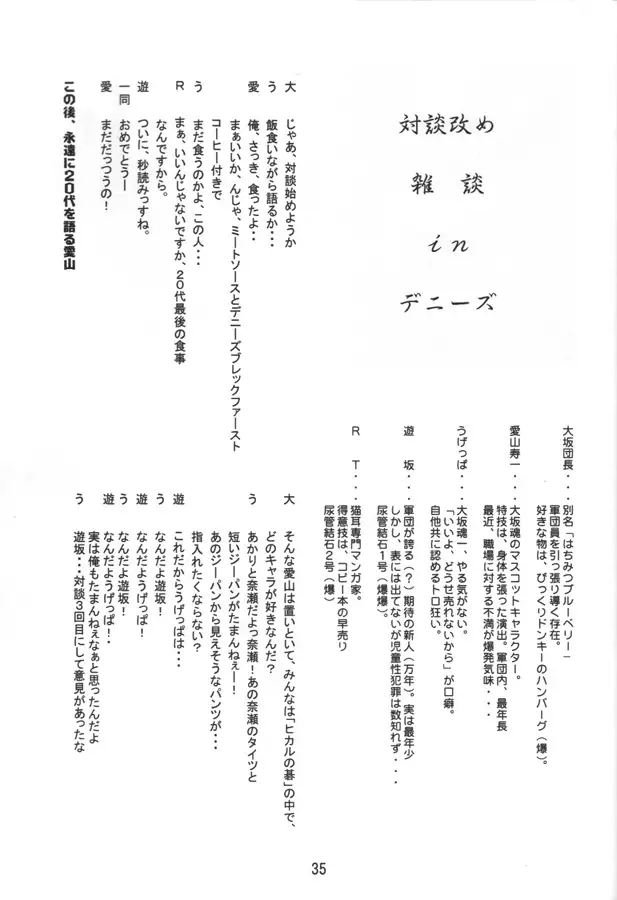 対談改め
雑談
in
デニーズ
大坂団長・・・別名「はちみつブルーベリー」
軍団員を引っ張り導く存在。
好きな物は、びっくりドンキーのハンバーグ（爆）。
愛山寿一・・・大坂魂のマスコットキャラクター。
特技は、身体を張った演出。軍団内、最年長
最近、職場に対する不満が爆発気味・・・
うげっぱ・・・大坂魂一、やる気がない。
「いいよ、どうせ売れないから」が口癖。
自他共に認めるトロ狂い。
遊　坂・・・軍団が誇る（？）期待の新人（万年）。実は最年少
しかし、表には出てないが児童性犯罪は数知れず・・・
尿管結石１号（爆爆）。
Ｒ　Ｔ・・・猫耳専門マンガ家。
得意技は、コピー本の早売り
尿管結石２号（爆）
大　じゃあ、対談始めようか
う　飯食いながら語るか・・・
愛　俺、さっき、食ったよ・・
まぁいいか、んじゃ、ミートソースとデニーズブレックファースト
コーヒー付きで
う　まだ食うのかよ、この人・・・
Ｒ　まぁ、いいんじゃないですか、２０代最後の食事
なんですから。
遊　ついに、秒読みっすね。
一同　おめでとうー
愛　まだだっつうの！
この後、永遠に２０代を語る愛山
大　そんな愛山は置いといて、みんなは「ヒカルの碁」の中で、
どのキャラが好きなんだ？
う　あかりと奈瀬だよっ奈瀬！あの奈瀬のタイツと
短いジーパンがたまんねぇー！
あのジーパンから見えそうなパンツが・・・
指入れたくならない？
遊　これだからうげっぱは・・・
う　なんだよ遊坂！
遊　なんだようげっぱ！
う　なんだよ遊坂！
遊　なんだようげっぱ！・・
実は俺もたまんねぇなぁと思ったんだよ
う　遊坂・・・対談３回目にして意見があったな
35